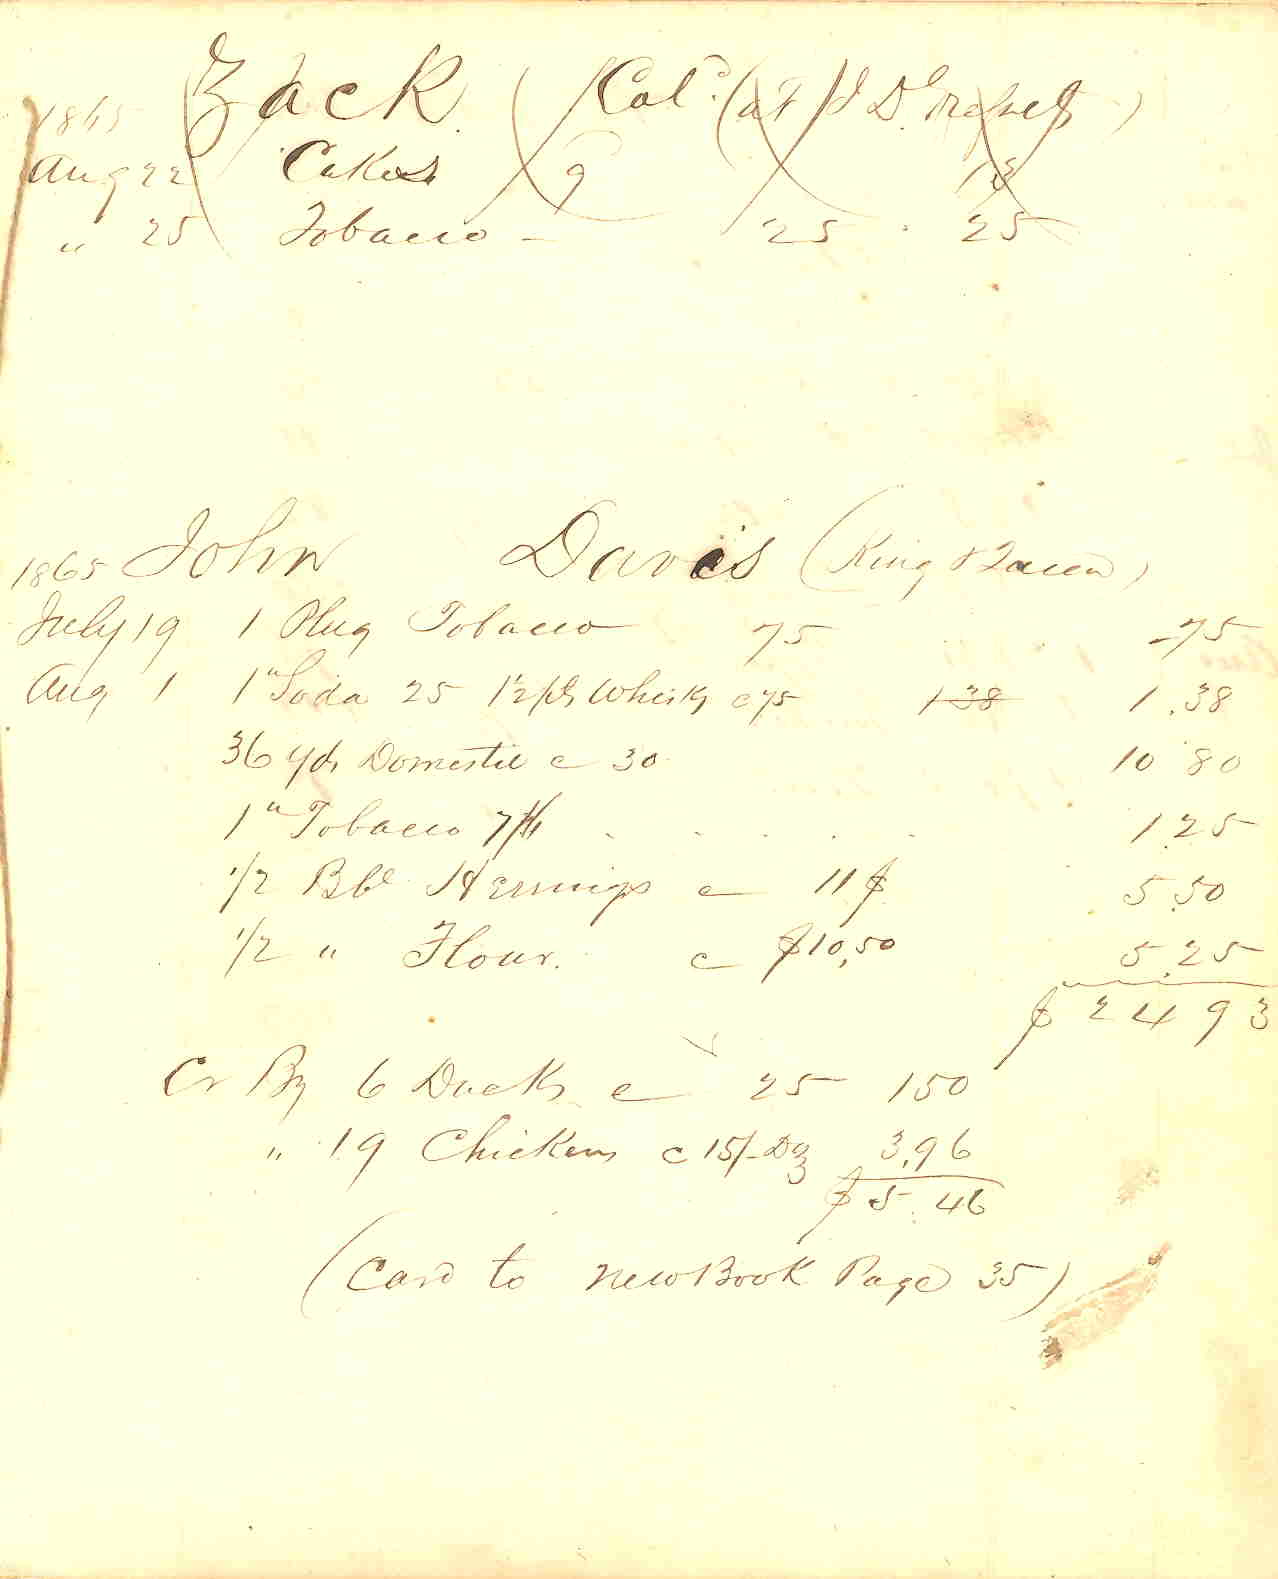 1865 Zack (Cold (at J D
Aug 22 Cakes 9 13
" 25 Tobacco - 25 25
1865 John Davis (King & Queen)
July 19 1 Plug Tobacco 75 75
Aug 1 1 " Soda 25 1 1/2 pts Whisky c 75 1 38 1.38
36 yds Domestic c 30 10 80
1 " Tobacco 7/6 1.25
1/2 Bbl Herrings c 11$ 5.50
1/2 " Flour. c $10,50 5.25
$ 24 93
Cr By 6 Ducks c 25 150
" 19 Chickens c 15/- Dz 3.96
$ 5.46
(Card to New Book Page 35)